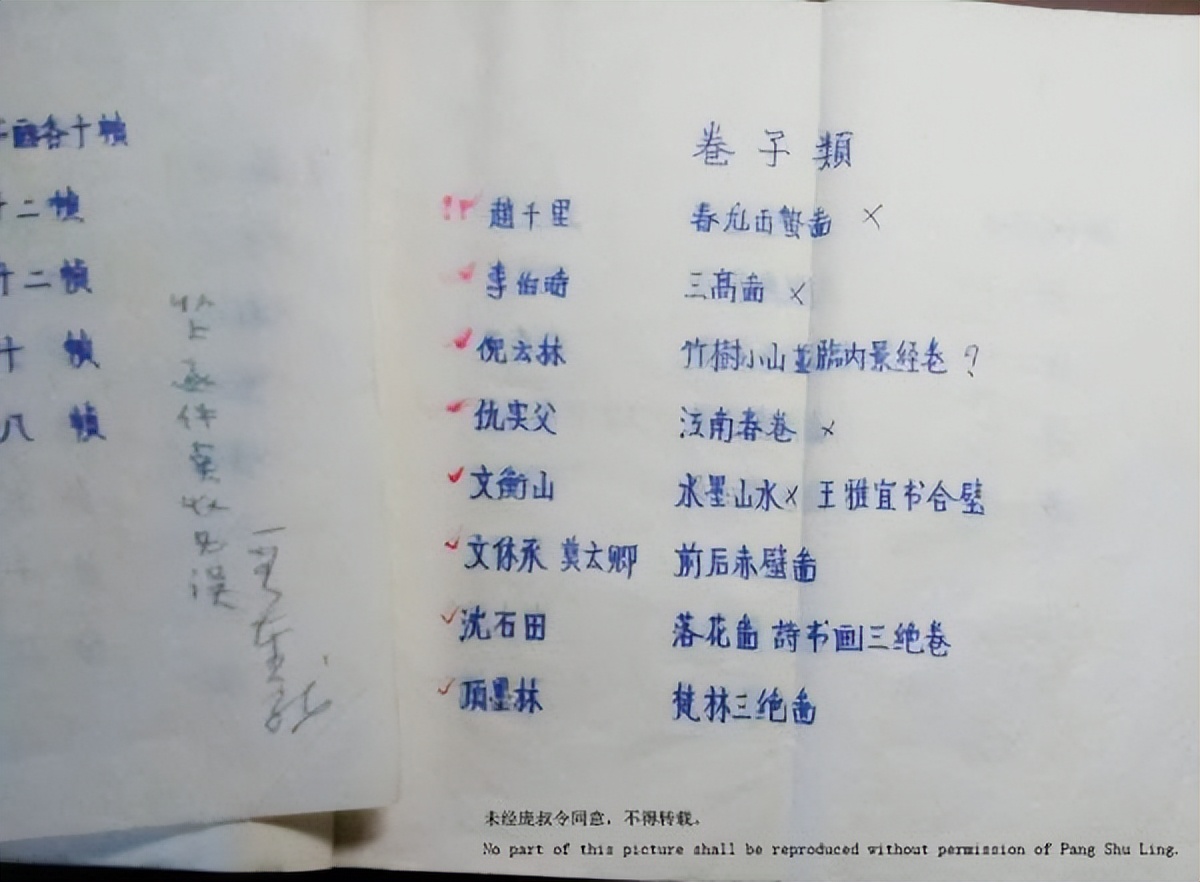 画各十幀
十二幀
十二幀
十 幀
八 幀
卷子類
趙千里 春 蟹啚 ×
李伯時 三高啚 ×
倪云林 竹樹小山並臨内景経卷 ?
仇实父 江南春卷 ×
文衡山 水墨山水× 王雅宜书合璧
文休承 莫太卿 前后赤壁啚
沈石田 落花啚 詩书画三绝卷
项墨林 梵林三绝啚
未经庞叔令同意，不得转载。
No part of this picture shall be reproduced without permission of Pang Shu Ling.